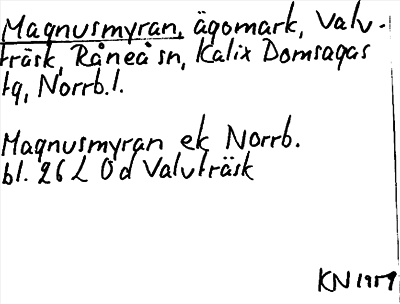 Magnusmyran, ägomark, Valv-
träsk, Råneå sn, Kalix Domsagas
tg, Norrb.l.
Magnusmyran ek Norrb.
bl. 26 L 0d Valvträsk
KN 1959